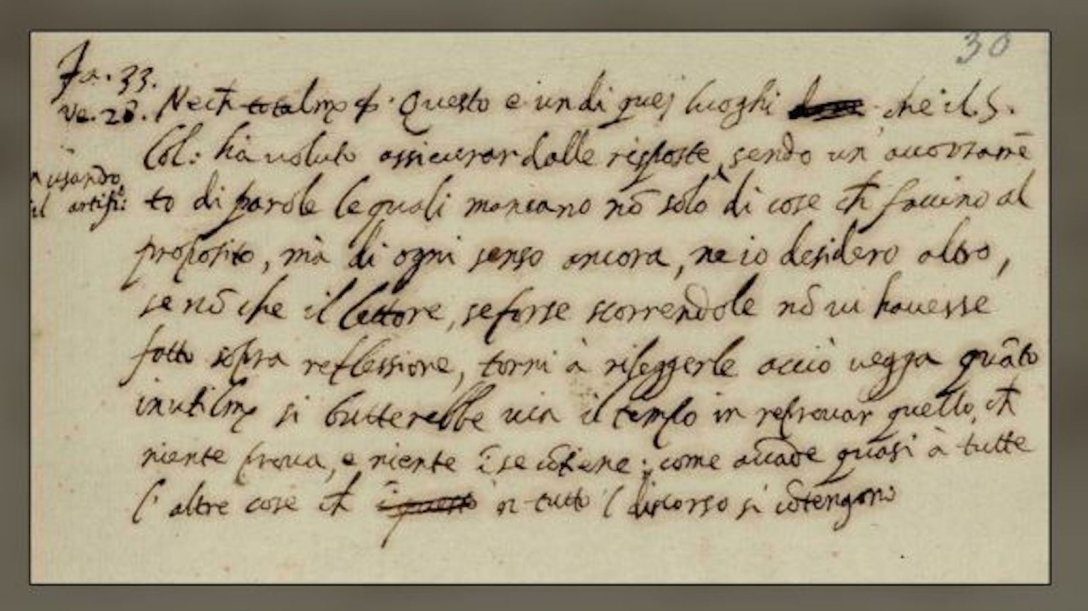 30
Fa. 33.
Ve. 28. Nech totalmẽ &. Questo e un di quej luoghi che il S.
Col: hà voluto assicurar dalle risposte, sendo un'accozzamẽ
usando
artifi:
to di parole le quali mancano nõ solo di cose ch̃ faccino al
proposito, mà di ogni senso ancora, ne io desidero altro,
se nõ che il lettore, se forse scorrendole nõ vi hauesse
fatto sopra reflessione, torni à rileggerle acciò vegga quãto
inutilmẽ si butterebbe via il tempo in reprovar quello, ch̃
niente prova, e niente ĩ se cõtiene; come accade quasi à tutte
l'altre cose ch̃ ĩ questo in tutto l discorso si cõtengono